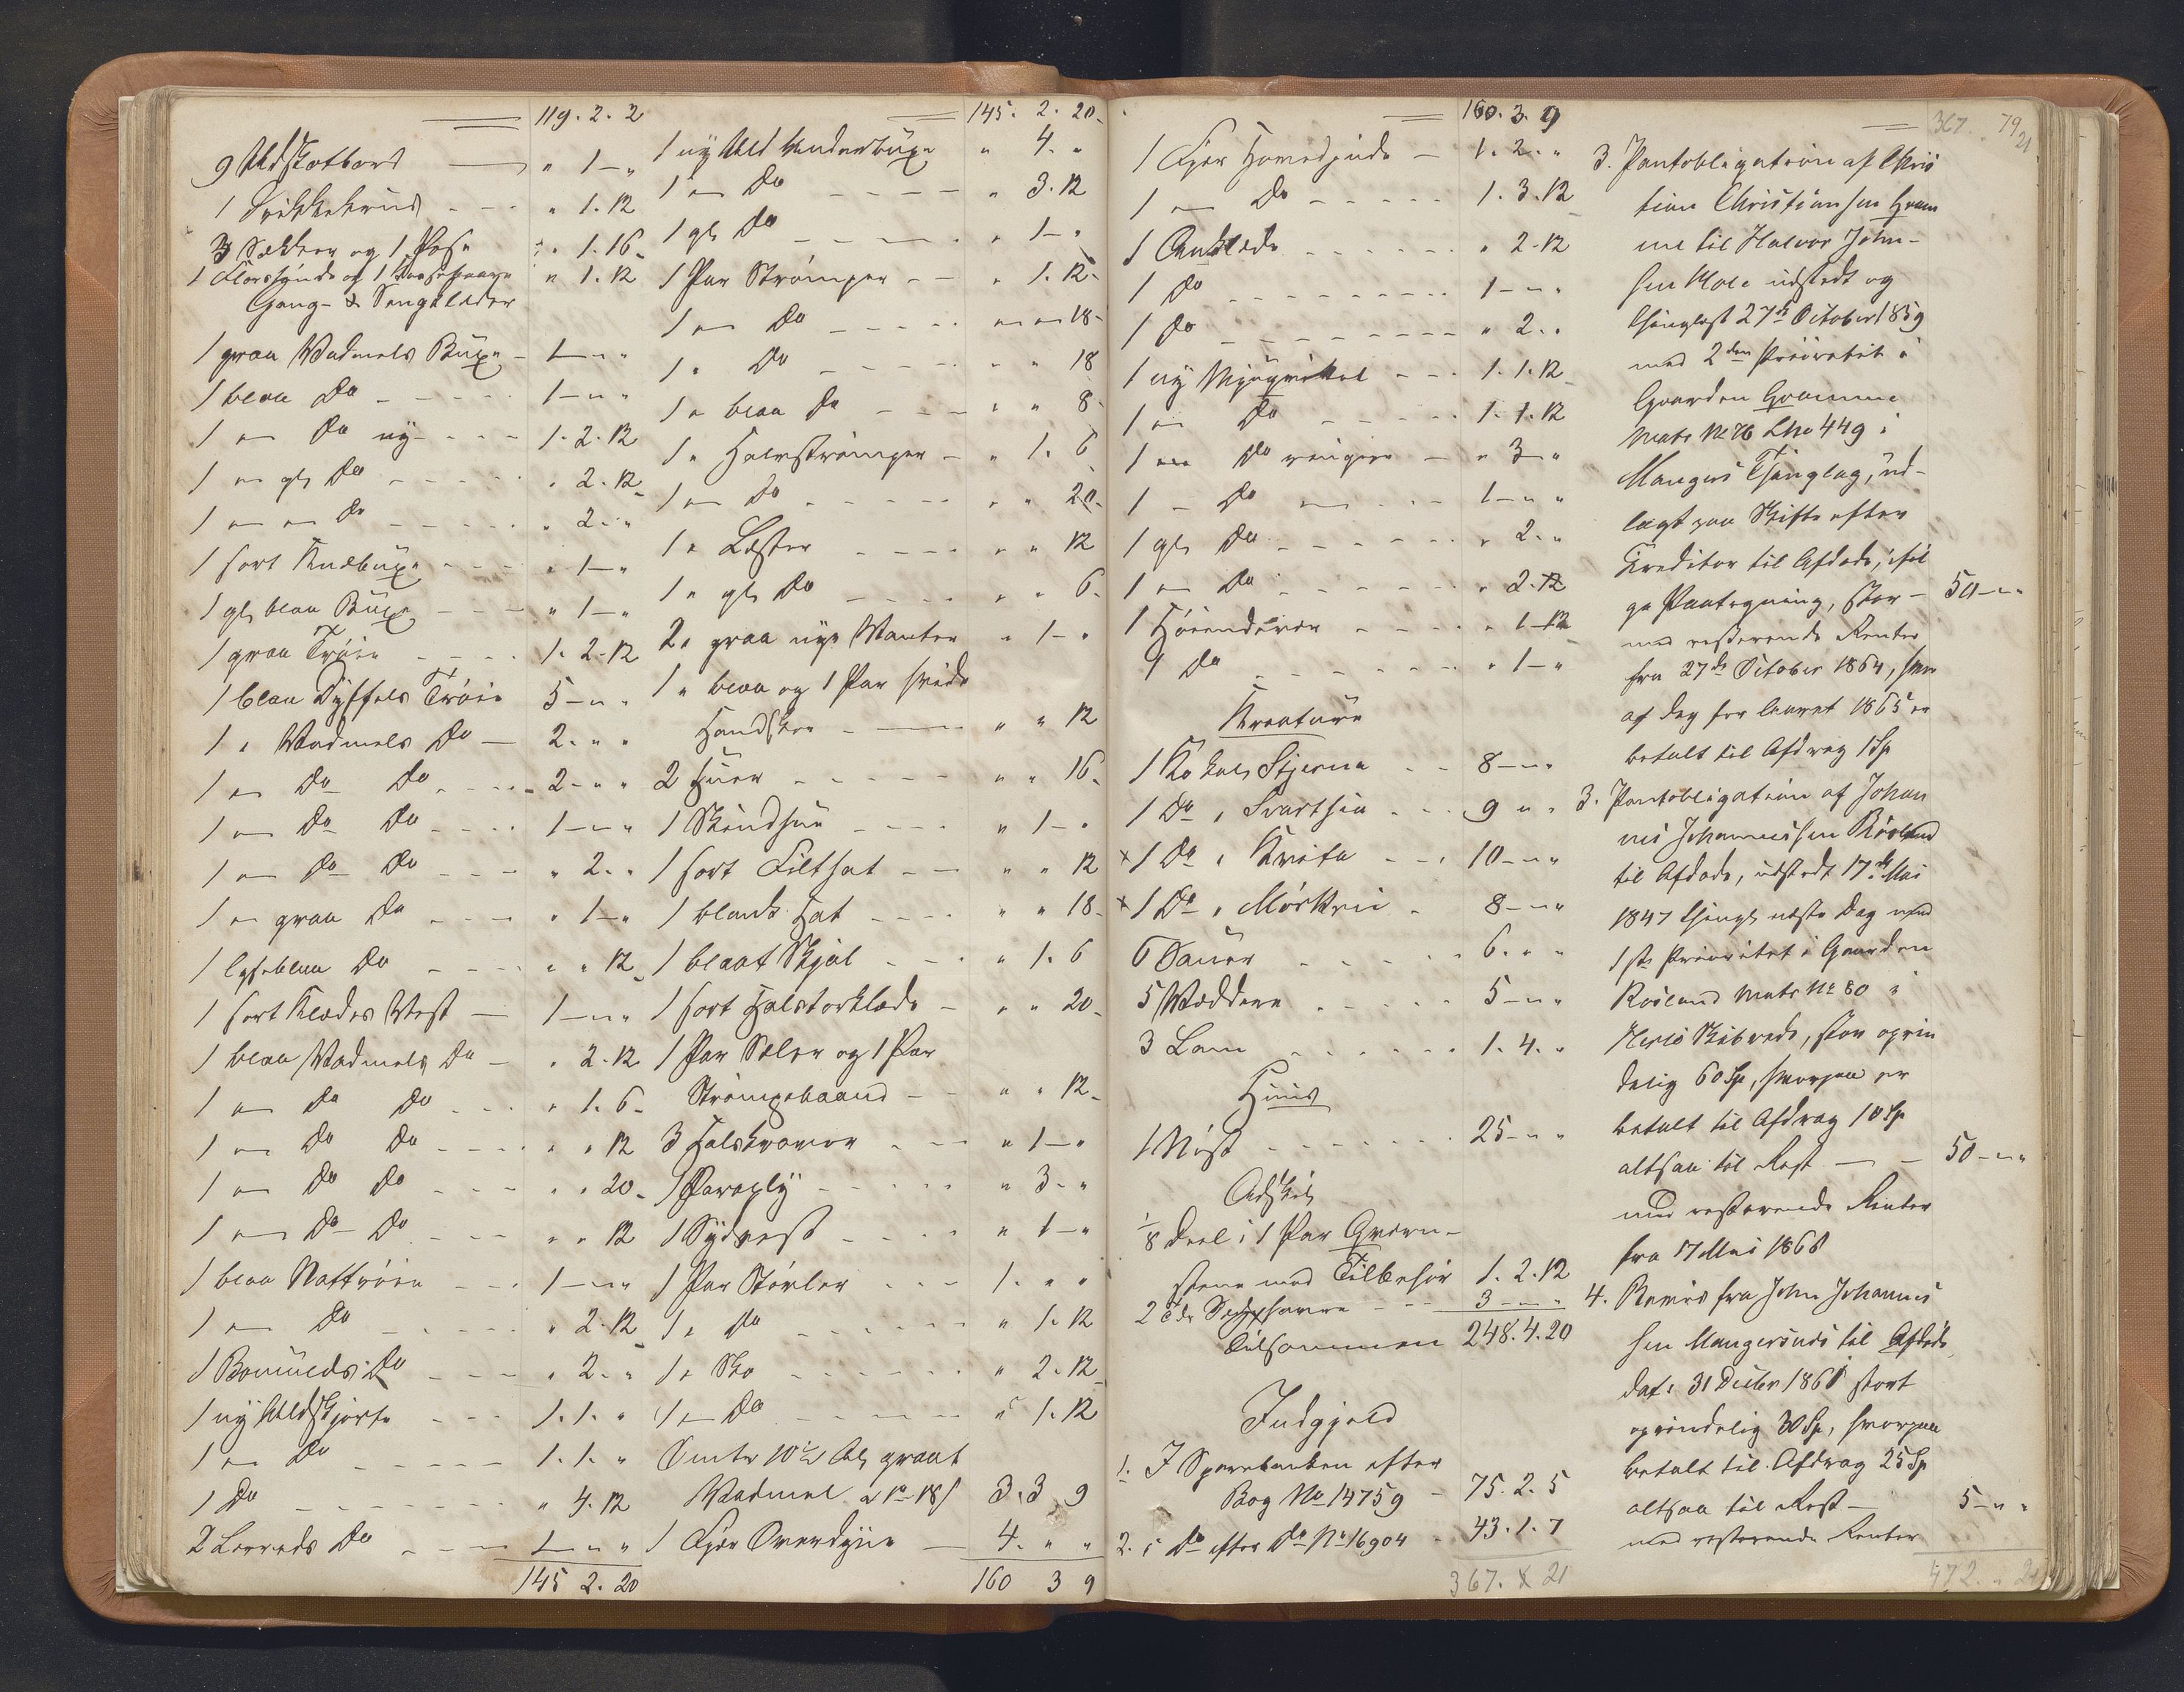 119. 2. 2
9 Uldskotbord — " 1 — "
1 Drikkekrus - - - " 1. 12
3 Sækker og 1 Pose " 1. 16
1 og 1 " 1. 12
Gang- & Sengklæder
1 graa Vadmels Buxe - 1 - " "
1 blaa Do - - - 1 - " "
1 " Do ny - - - 1. 2. 12
1 " gl. Do - - - " 2. 12
1 " " Do - - - " 2. "
1 sort Knæbuxe - - - " 1 - "
1 gl. blaa Buxe - - - " 1 - "
1 graa Trøie - - - 1. 2. 12
1 blaa Dyffels Trøie 5 - " "
1 " Vadmels Do — 2. " "
1 " Do Do - - - 2 - " "
1 " Do Do - - - 1 - " "
1 " Do Do - - - " 2. "
1 " graa Do - - - " 1 - "
1 lyseblaa Do - - - " " 12
1 sort Klædes Vest — 1 - " "
1 blaa Vadmels Do — " 2. 12
1 " Do Do - - - " 1. 6
1 " Do Do - - - " " 12
1 " Do Do - - - " " 20
1 " Do Do - - - " " 12
1 blaa Nattrøie - - - 1 - " "
1 " Do - - - " 2. 12
1 Bomulds Do - - - " 2. "
1 ny Uldskjorte - - - 1. 1. "
1 " Do - - - 1. 1. "
1 Do - - - " 4. 12
2 Lerreds Do - - - 1 - " "
145 2. 20
145. 2. 20
1 ny Uld Underbuxe " 4. "
1 " Do - - - " 3. 12
1 gl. Do - - - " 1 - "
1 Par Strømper - - " 1. 12
1 " Do - - - " " 18
1 " Do - - - " " 18
1 " blaa Do - - - " " 8
1 " Halvstrømper - " 1. 6
1 " Do - - - " " 20
1 " Læster - - - " " 12
1 " gl. Do - - - " " 6
2 " graa nye Vanter " 1 - "
1 " blaa og 1 Par hvide
Handsker - — " " 12
2 Huer - - - " " 16
1 Skindhue - - - " 1 - "
1 sort Filthat - - " " 12
1 blank Hat - - - " " 18
1 blaat Skjal - - - " 1. 6
1 sort Halstørklæde - " " 20
1 Par Seler og 1 Par
Strømpebaand - - " " 12
3 Halskraver - - - " 1 - "
1 Paraply - - - " 3 - "
1 Sydvest - - - " 1 - "
1 Par Støvler - - - 1. " "
1 " Do - - - " 1. 12
1 " Sko - - - " 2. 12
1 " Do - - - " 1. 12
Omtr 10½ Al. graat
Vadmel a 1 18 3. 3 9
1 Fjær Overdyne — 4. " "
160 3 9
160. 3. 9
1 Fjær Hovedpude — 1. 2. "
1 " Do - - - 1. 3. 12
1 Aaklæde - - - " 2. 12
1 Do - - - 1 - " "
1 Do - - - " 2. "
1 ny - - - 1. 1. 12
1 " Do - - - 1. 1. 12
1 " Do ringere — " 3 - "
1 - Do " - - 1 - " "
1 gl. Do - - - " 2. "
1 " Do - - - " 2. 12
1 Høiendevar - - - " 1 - 12
1 Do - - - " 1 - "
Kreature
1 Ko kal. Stjerna - - 8 - " "
1 Do " Svartsia - - 9 " "
x 1 Do " Kvita - - - 10 - " "
x 1 Do " Mørkrei - 8 - " "
6 Sauer - - - 6. " "
5 Væddere - - - 5 - " "
3 Lam - - - 1. 4. "
Huus
1 Nøst - - - 25 - " "
Adskil.
1/8 Deel i 1 Par Qværn-
stene med Tilbehør 1. 2. 12
2 - - 3 - " "
Tilsammen 248. 4. 20
Indgjæld
1. I Sparebanken efter
Bog No 14759 - 75. 2. 5
2. i Do efter Do No 16904 - 43. 1. 7
367. 21
367. 79
21
3. Pantobligation af Chris
tian Christiansen Gram
me til Halvor John-
sen udstedt og
thinglæst 27de October 1859
med 2den Prioritet i
Gaarden Gramme
Matr No 76 LNo 449 i
Mangers Thinglag, ud-
lagt paa Skifte efter
Kreditor til Afdøde, iføl
ge Paategning, stor - 50 - " "
med resterende Renter
fra 27de October 1864, hvor
af dog for Aaret 1865 er
betalt til Afdrag 1 Sp
3. Pantobligation af Johan
nes Johannessen Røsland
til Afdøde, udstedt 17de Mai
1847 thingl. næste Dag med
1ste Prioritet i Gaarden
Rosland Matr No 80 i
Herlø Skibrede, stor oprin
delig 60 Sp, hvorpaa er
betalt til Afdrag 10 Sp
altsaa til Rest — - 50 - " "
med resterende Renter
fra 17 Mai 1868
4. Bevis fra John Johannes
sen Mangersnæs til Afdøde
dat: 31 Decber 1861 stort
oprindelig 30 Sp, hvorpaa
betalt til Afdrag 25 Sp
altsaa til Rest — 5 - " "
med resterende Renter
472. " 21